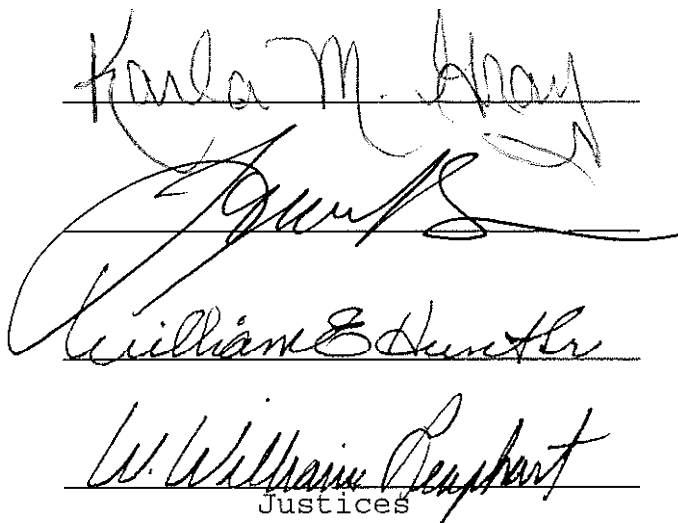 Karla M. Gray
William E Hunt Sr
W. William Leaphart
Justices